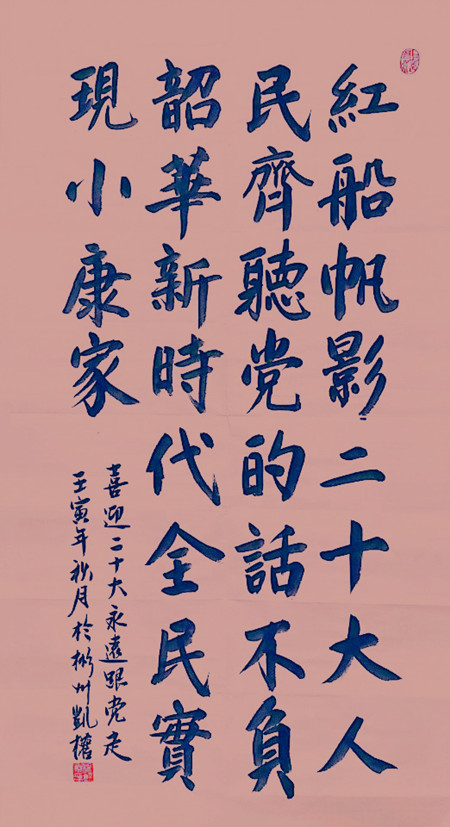 紅船帆影二十大人
民齊聽党的話不負
韶華新時代全民實
現小康家
喜迎二十大永遠跟党走
壬寅年秋月於彬州凱權